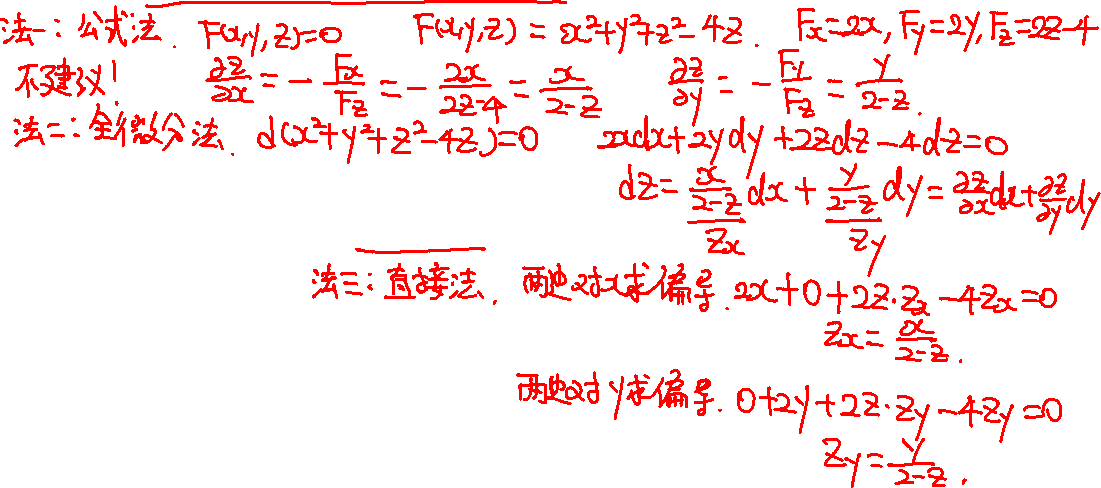 法一：公式法. F(x,y,z)=0 F(x,y,z)=x²+y²+z²-4z. Fx=2x, Fy=2y, Fz=2z-4
不建议! ∂z/∂x = -Fx/Fz = -2x/(2z-4) = x/(2-z) ∂z/∂y = -Fy/Fz = y/(2-z).
法二：全微分法. d(x²+y²+z²-4z)=0 2xdx+2ydy+2zdz-4dz=0
dz = x/(2-z) dx + y/(2-z) dy = ∂z/∂x dx + ∂z/∂y dy
zx zy
法三：直接法. 两边对x求偏导. 2x+0+2z·zx-4zx=0
zx = x/(2-z).
两边对y求偏导. 0+2y+2z·zy-4zy=0
zy = y/(2-z).